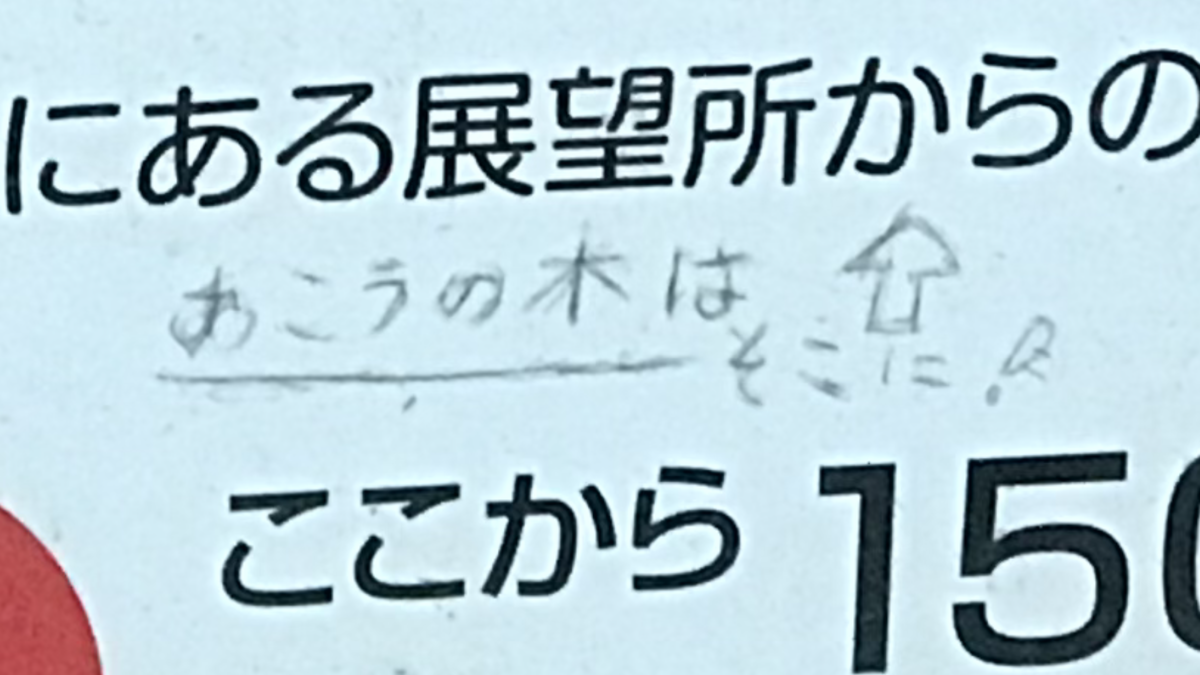 にある展望所からの
あこうの木は⇧
そこに!
ここから 150